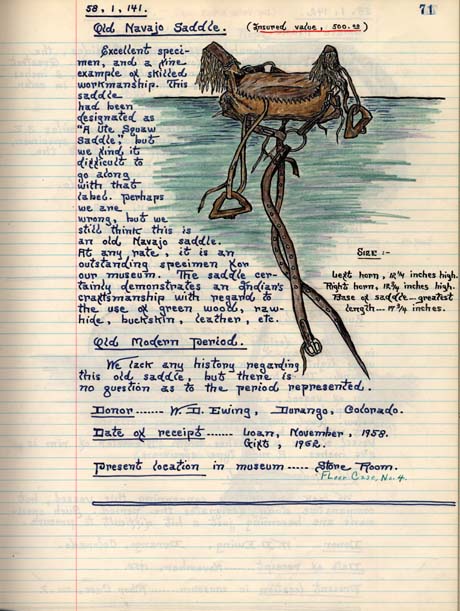 58, 1, 141.
71
Old Navajo Saddle. (Insured value, 500.00)
Excellent speci-
men, and a fine
example of skilled
workmanship. This
saddle
had been
designated as
"A Ute Squaw
Saddle," but
we find it
difficult to
go along
with that
label. Perhaps
we are
wrong, but we
still think this is
an old Navajo saddle.
At any rate, it is an
outstanding specimen for
our museum. The saddle cer-
tainly demonstrates an Indian's
craftsmanship with regard to
the use of green wood, raw-
hide, buckskin, leather, etc.
Size:-
Left horn, 12 1/4 inches high.
Right horn, 12 3/4 inches high.
Base of saddle---greatest
length--- 17 3/4 inches.
Old Modern Period.
We lack any history regarding
this old saddle, but there is
no question as to the period represented.
Donor ------- W. D. Ewing, Durango, Colorado.
Date of receipt ------- Loan, November, 1958.
Gift, 1962.
Present location in museum ----- Store Room.
Floor Case, No. 4.